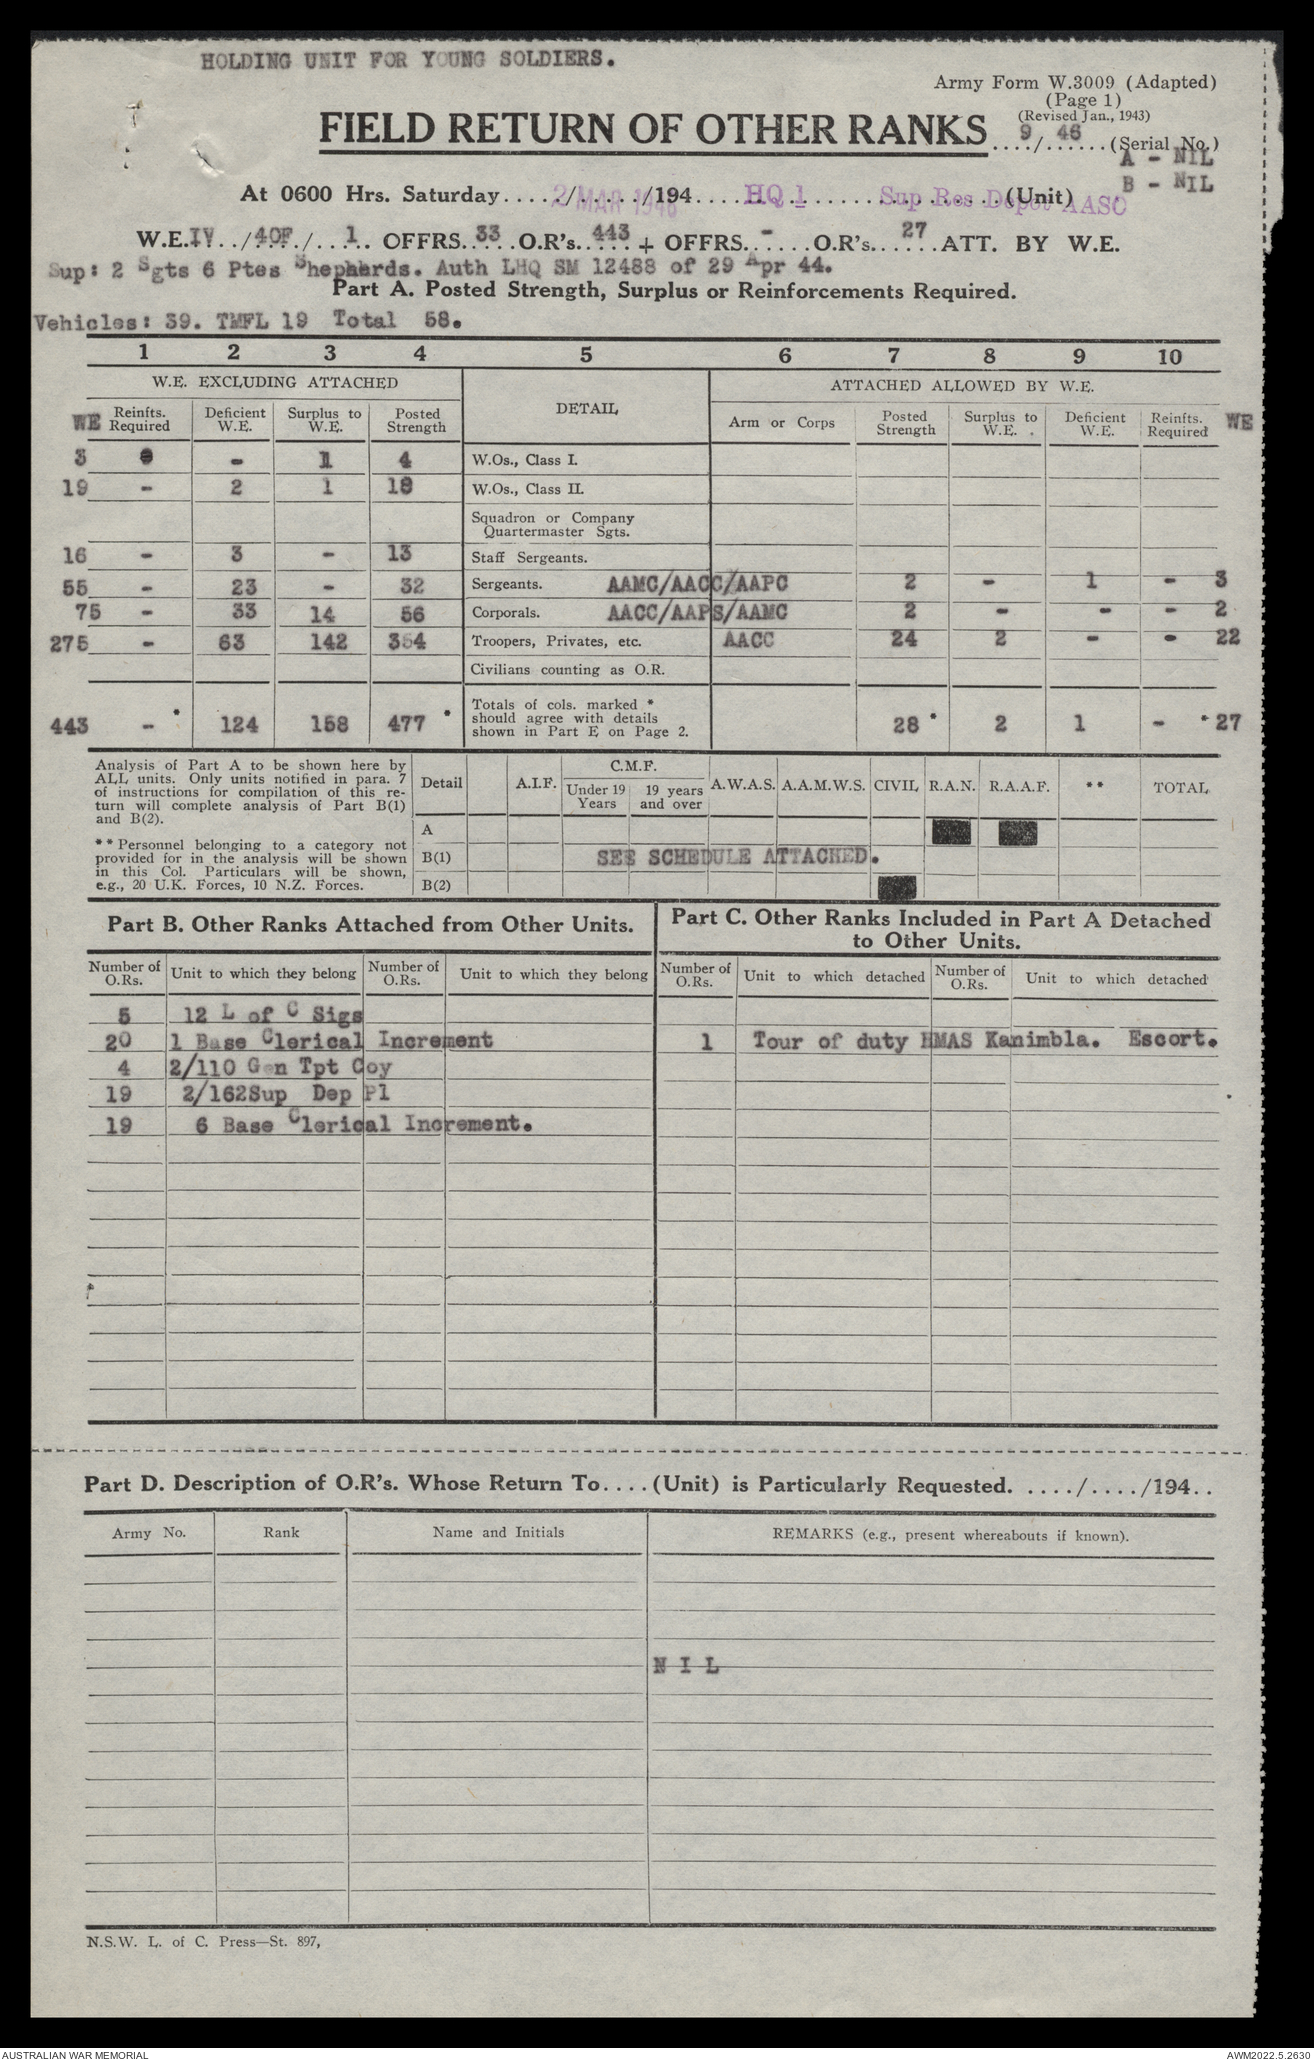 HOLDING UNIT FOR YOUNG SOLDIERS.
Army Form W.3009 (Adapted)
(Page 1)
(Revised Jan., 1943)
FIELD RETURN OF OTHER RANKS....9/..46....(Serial No.)
A - NIL
B - NIL
At 0600 Hrs. Saturday 2 MAR 1946 /194.... HQ 1 Sup Res Depot AASC (Unit)
W.E. IV../40F./...1.. OFFRS. 33 O.R's. 443 + OFFRS. - O.R's. 27 ATT. BY W.E.
Sup: 2 Sgts 6 Ptes Shepherds. Auth LHQ SM 12488 of 29 Apr 44.
Part A. Posted Strength, Surplus or Reinforcements Required.
Vehicles: 39. TMFL 19 Total 58.
1 2 3 4 5 6 7 8 9 10
W.E. EXCLUDING ATTACHED DETAIL ATTACHED ALLOWED BY W.E.
WE Reinfts. Required Deficient W.E. Surplus to W.E. Posted Strength Arm or Corps Posted Strength Surplus to W.E. Deficient W.E. Reinfts. Required WE
3 - 1 4 W.Os., Class I.
19 - 2 1 18 W.Os., Class II.
Squadron or Company
Quartermaster Sgts.
16 - 3 - 13 Staff Sergeants.
55 - 23 - 32 Sergeants. AAMC/AACC/AAPC 2 - 1 - 3
75 - 33 14 56 Corporals. AACC/AAPS/AAMC 2 - - - 2
275 - 63 142 354 Troopers, Privates, etc. AACC 24 2 - - 22
Civilians counting as O.R.
443 - * 124 158 477 * Totals of cols. marked * should agree with details shown in Part E on Page 2. 28 * 2 1 - * 27
Analysis of Part A to be shown here by
ALL units. Only units notified in para. 7
of instructions for compilation of this re-
turn will complete analysis of Part B(1)
and B(2).
** Personnel belonging to a category not
provided for in the analysis will be shown
in this Col. Particulars will be shown,
e.g., 20 U.K. Forces, 10 N.Z. Forces.
Detail A.I.F. C.M.F. Under 19 Years 19 years and over A.W.A.S. A.A.M.W.S. CIVIL R.A.N. R.A.A.F. ** TOTAL
A
B(1) SEE SCHEDULE ATTACHED.
B(2)
Part B. Other Ranks Attached from Other Units.
Part C. Other Ranks Included in Part A Detached
to Other Units.
Number of O.Rs. Unit to which they belong Number of O.Rs. Unit to which they belong Number of O.Rs. Unit to which detached Number of O.Rs. Unit to which detached
5 12 L of C Sigs
20 1 Base Clerical Increment 1 Tour of duty HMAS Kanimbla. Escort.
4 2/110 Gen Tpt Coy
19 2/162Sup Dep Pl
19 6 Base Clerical Increment.
Part D. Description of O.R's. Whose Return To....(Unit) is Particularly Requested. ..../..../194..
Army No. Rank Name and Initials REMARKS (e.g., present whereabouts if known).
N I L
N.S.W. L. of C. Press—St. 897,
AUSTRALIAN WAR MEMORIAL AWM2022.5.2630